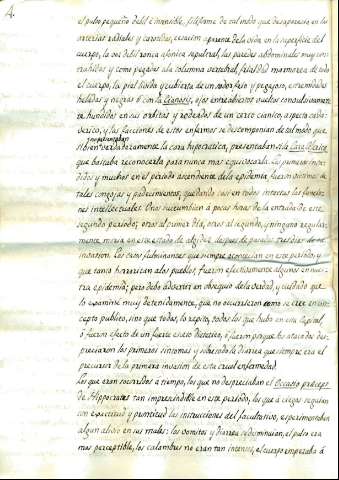 4.
el pulso pequeño debil é insensible, filiforme de tal modo que desaparecia en las
arterias radiales y carotidas, cesacion aparente de la vida en la superficie del
cuerpo, la voz debil ronca afonica sepulcral, las paredes abdominales muy con-
trahidas y como pegadas ala columna vertebral, frialdad marmorea de todo
el cuerpo, la piel humeda y cubierta de un sudor frio y pegajoso, extremidades
heladas y negras ó con la Cianosis, ojos entreabiertos vueltos convulsivamen-
te hundidos en sus orbitas y rodeados de un cerco cianico, aspecto cada-
verico, y las facciones de estos enfermos se descomponian de tal modo que
si bien verdaderamente la cara hipocratica, presentaban sí la Cara Colerica
que bastaba reconocerla para nunca mas equivocarla. Los primeros inva-
didos y muchos en el periodo ascendente de la epidemia fueron victimas de
tales congojas y padecimientos, quedando casi en todos intactas las funcio-
nes intellectuales. Unos sucumbian á pocas horas de la entrada de este
segundo periodo; otros al primer dia, otros al segundo, y ninguno regular-
mente moria en este estado de algidez despues de pasados tres dias de su
invasion. Los casos fulminantes que siempre acontecian en este periodo, y
que tanto horrorizan alos pueblos, fueron efectivamente algunos en nues-
tra epidemia; pero debo advertir en obsequio de la verdad, y cuidado que
lo examiné muy detenidamente, que no ocurrieron como se cree en con-
cepto publico, sino que todos, lo repito, todos los que hubo en esta Capital,
ó fueron efecto de un fuerte exceso dietetico, ó fueron porque los atacados des-
preciaron los primeros sintomas y sobretodo la diarrea que siempre era el
precursor de la primera invasion de esta cruel enfermedad.
Los que eran socorridos a tiempo, los que no despreciaban el Occasio præceps
de Hippocrates tan imprescindible en este periodo, los que á ciegas seguian
con exactitud y prontitud las instrucciones del facultativo, experimentaban
algun alivio en sus males: los vomitos y diarrea se disminuian, el pulso era
mas perceptible, los calambres no eran tan intensos, el cuerpo empezaba á